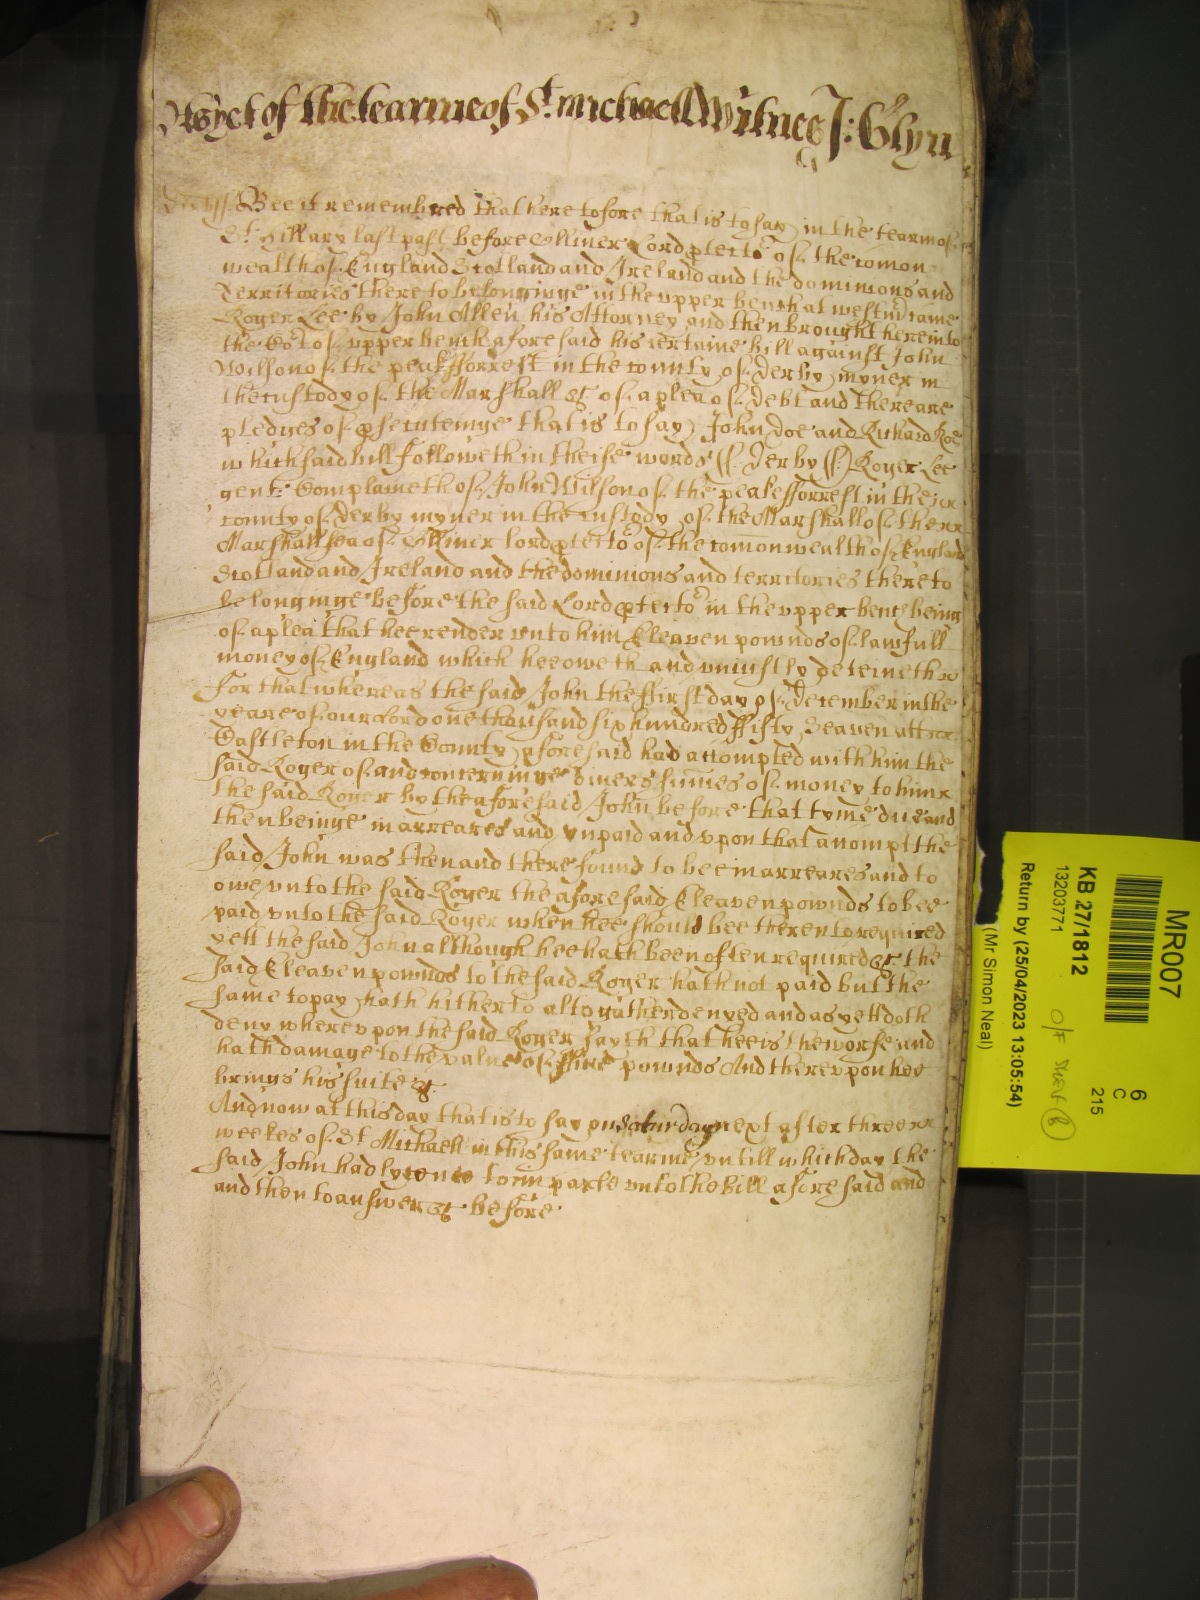 As yet of the tearme of St. Michaell Witnes J: Glyn
Derby ss. Bee it remembred that heretofore that is to say in the tearme of
St. Hillary last past before Oliver Lord ptector of the comon
wealth of England Scotland and Ireland and the dominions and
Territories thereto belonginge in the upper bench at westmr came
Roger Lee by John Allen his Attorney and then brought here into
the Cot of upper bench aforesaid his certaine bill against John
Wilson of the peake fforrest in the county of Derby myner in
the custody of the Marshall &c of a plea of debt and there are
pledges of psecuteinge that is to say John Doe and Richard Roe
which said bill followeth in theise words ss. Derby ss. Roger Lee
gent: Complaineth of John Wilson of the peake fforrest in the
county of Derby myner in the custody of the Marshall of the
Marshallsea of Oliver lord ptector of the comonwealth of England
Scotland and Ireland and the dominions and territories thereto
belonginge before the said Lord ptector in the upper bench being
of a plea that hee render unto him Eleaven pownds of lawfull
money of England which hee oweth and uniustly deteineth
for that whereas the said John the ffirst day of December in the
yeare of our Lord one thousand six hundred ffifty Seaven att
Castleton in the County aforesaid had accompted with him the
said Roger of and concerninge divers summes of money to him
the said Roger by the aforesaid John before that tyme due and
then beinge in arreares and unpaid and upon that accompt the
said John was then and there found to bee in arreares and to
owe unto the said Roger the aforesaid Eleaven pownds to bee
paid unto the said Roger when hee should bee thereunto required
yett the said John although hee hath been often required &c the
said Eleaven pownds to the said Roger hath not paid but the
same to pay hath hitherto altogather denyed and as yett doth
deny whereupon the said Roger sayth that hee is the worse and
hath damage to the value of ffive pownds And thereupon hee
brings his suite &c.
And now at this day that is to say on Saturday next after three
weekes of St Michaell in this same tearme untill which day the
said John had lycence to imparle unto the Bill aforesaid and
and then to answer &c before
MR007
6
C
215
KB 27/1812
1320377 1
O/F Shelf (B)
Return by (25/04/2023 13:05:54)
(Mr Simon Neal)